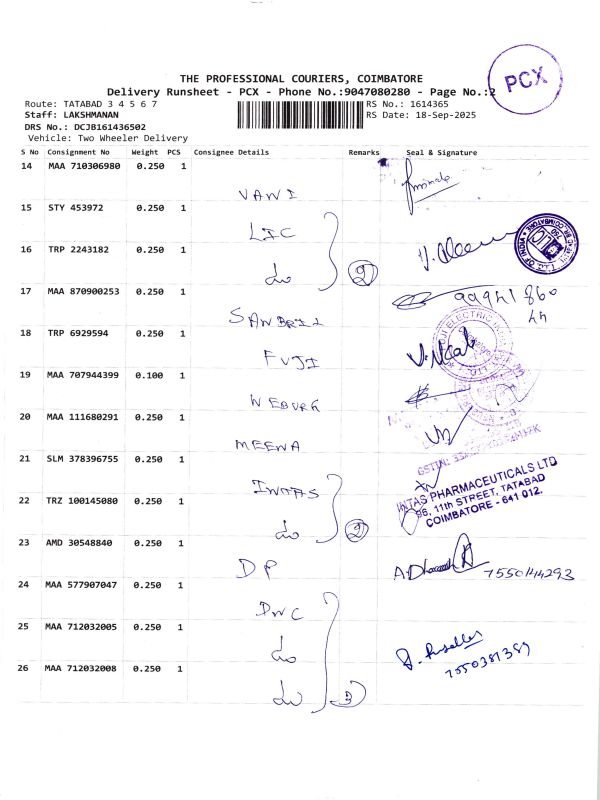 PCX
THE PROFESSIONAL COURIERS, COIMBATORE
Delivery Runsheet - PCX - Phone No.:9047080280 - Page No.:2
Route: TATABAD 3 4 5 6 7
Staff: LAKSHMANAN
DRS No.: DCJB161436502
Vehicle: Two Wheeler Delivery
RS No.: 1614365
RS Date: 18-Sep-2025
S No Consignment No Weight PCS Consignee Details Remarks Seal & Signature
14 MAA 710306980 0.250 1
VANI
15 STY 453972 0.250 1
LIC
16 TRP 2243182 0.250 1
do 2
17 MAA 870900253 0.250 1
99941 860
44
18 TRP 6929594 0.250 1
FUJI
19 MAA 707944399 0.100 1
20 MAA 111680291 0.250 1
MEENA
21 SLM 378396755 0.250 1
INTAS
INTAS PHARMACEUTICALS LTD
11th STREET, TATABAD
COIMBATORE - 641 012.
22 TRZ 100145080 0.250 1
do 2
23 AMD 30548840 0.250 1
DP
7550144293
24 MAA 577907047 0.250 1
DWC
25 MAA 712032005 0.250 1
do
7550381389
26 MAA 712032008 0.250 1
do 3